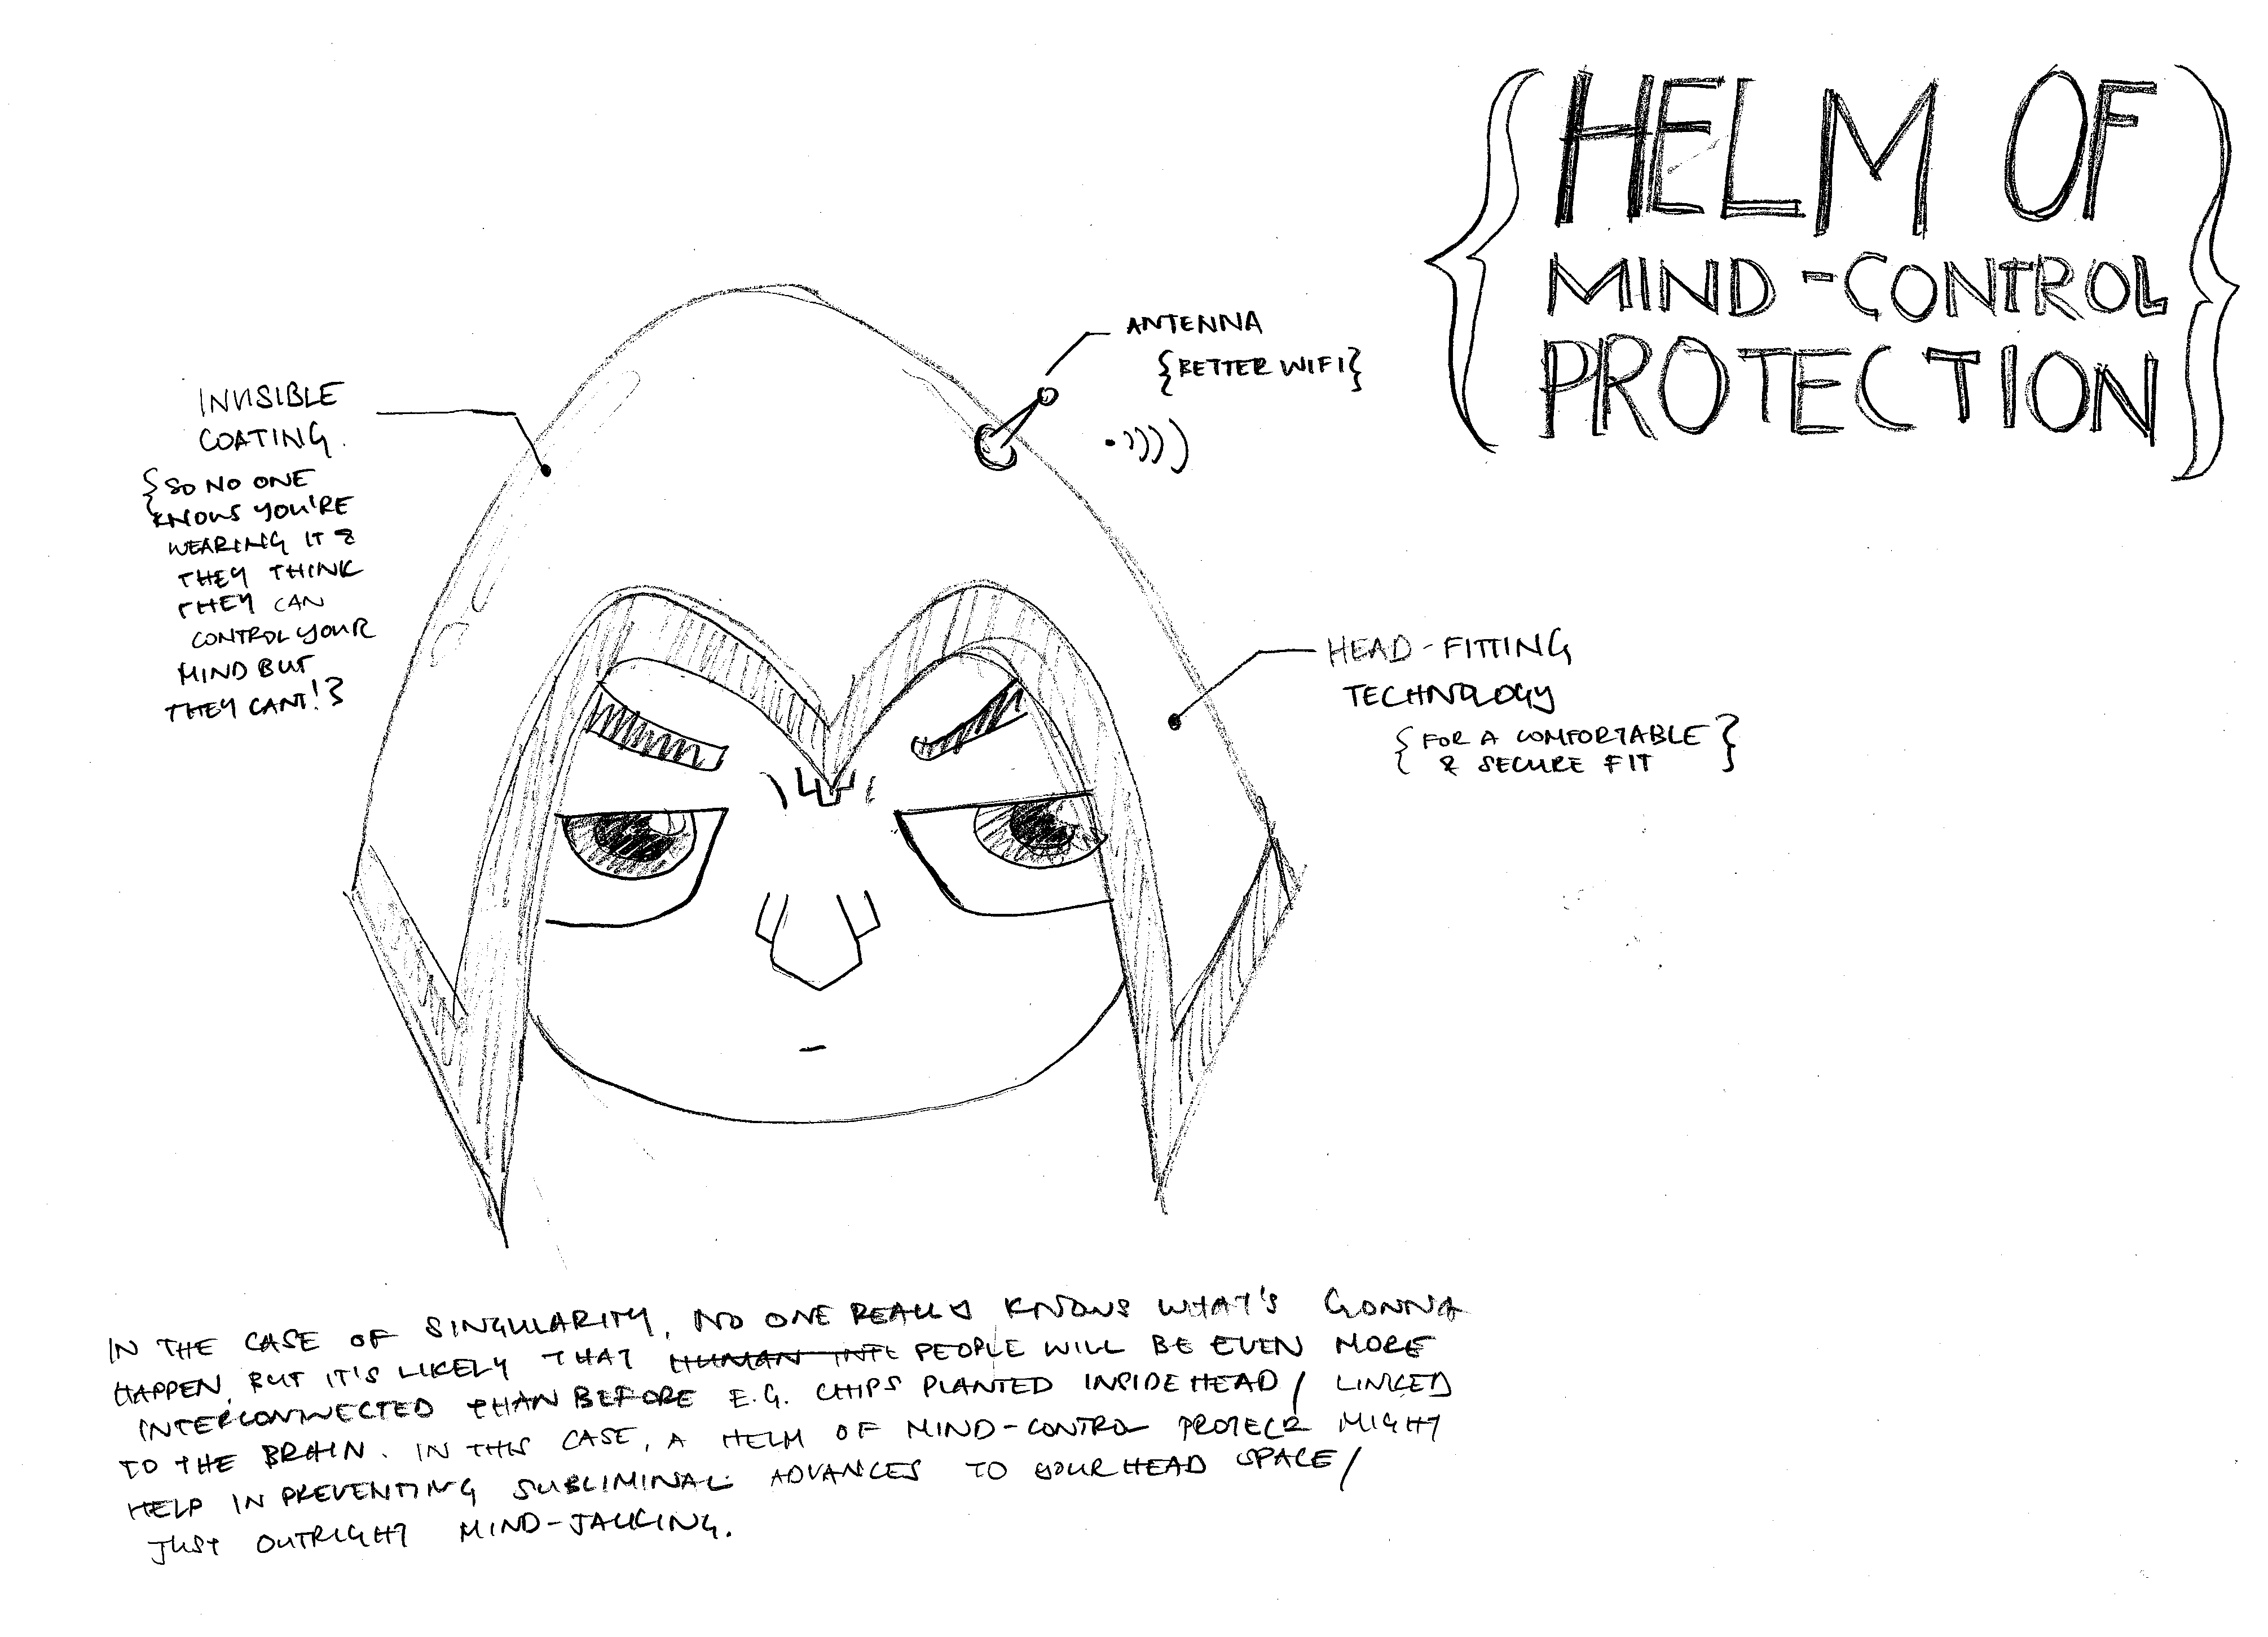 {HELM OF
MIND-CONTROL
PROTECTION}
ANTENNA
{BETTER WIFI}
INVISIBLE
COATING.
{SO NO ONE
KNOWS YOU'RE
WEARING IT &
THEY THINK
THEY CAN
CONTROL YOUR
MIND BUT
THEY CANT!}
HEAD-FITTING
TECHNOLOGY
{FOR A COMFORTABLE
& SECURE FIT}
IN THE CASE OF SINGULARITY, NO ONE REALLY KNOWS WHAT'S GONNA
HAPPEN, BUT IT'S LIKELY THAT HUMAN INTE PEOPLE WILL BE EVEN MORE
INTERCONNECTED THAN BEFORE E.G. CHIPS PLANTED INSIDE HEAD/ LINKED
TO THE BRAIN. IN THIS CASE, A HELM OF MIND-CONTROL MIGHT
HELP IN PREVENTING SUBLIMINAL ADVANCES TO YOUR HEAD SPACE/
JUST OUTRIGHT MIND-JACKING.